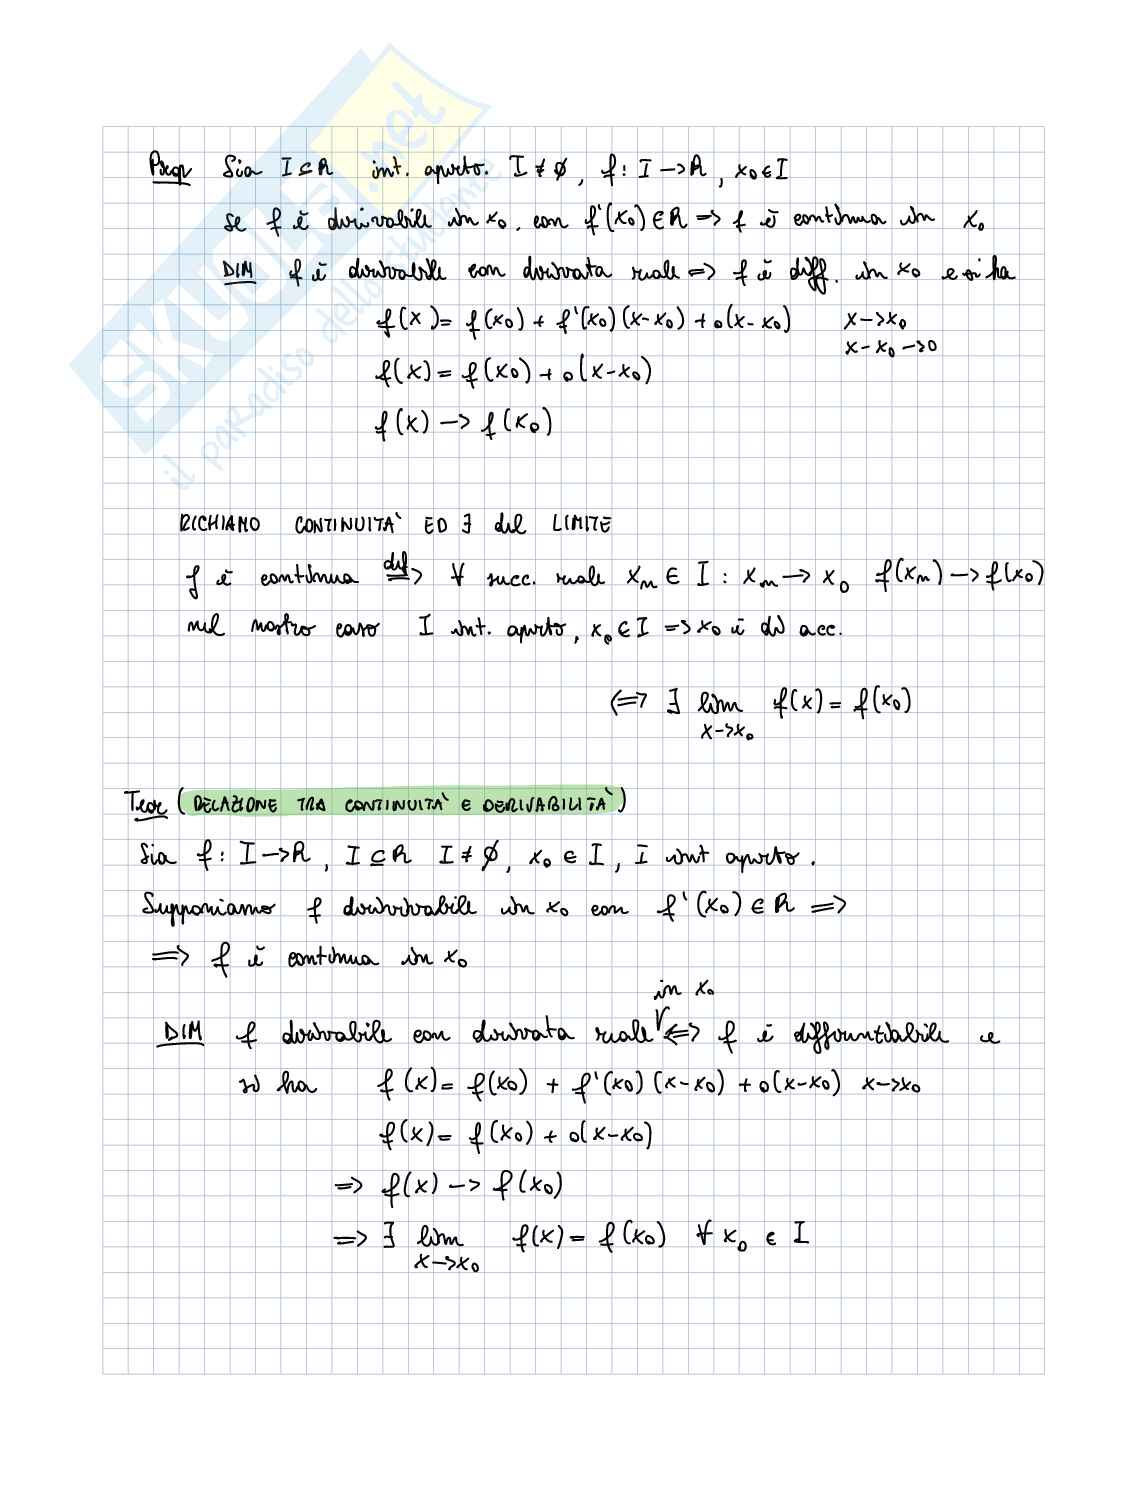 SKUOLA.net
il paradiso dello studente
Prop Sia I ⊆ R int. aperto. I ≠ ∅, f: I → R, x₀ ∈ I
se f è derivabile in x₀, con f'(x₀) ∈ R => f è continua in x₀
DIM f è derivabile con derivata reale => f è diff. in x₀ e si ha
f(x) = f(x₀) + f'(x₀)(x-x₀) + o(x-x₀) x -> x₀
x - x₀ -> 0
f(x) = f(x₀) + o(x-x₀)
f(x) -> f(x₀)
RICHIAMO CONTINUITA' ED ∃ del LIMITE
f è continua def=> ∀ succ. reale xₙ ∈ I : xₙ -> x₀ f(xₙ) -> f(x₀)
nel nostro caso I int. aperto, x₀ ∈ I => x₀ è di acc.
<=> ∃ lim f(x) = f(x₀)
x->x₀
Teor (RELAZIONE TRA CONTINUITA' E DERIVABILITA')
Sia f: I -> R, I ⊆ R I ≠ ∅, x₀ ∈ I, I int aperto.
Supponiamo f derivabile in x₀ con f'(x₀) ∈ R =>
=> f è continua in x₀
in x₀
DIM f derivabile con derivata reale <=> f è differentiabile e
si ha f(x) = f(x₀) + f'(x₀)(x-x₀) + o(x-x₀) x->x₀
f(x) = f(x₀) + o(x-x₀)
=> f(x) -> f(x₀)
=> ∃ lim f(x) = f(x₀) ∀ x₀ ∈ I
x->x₀